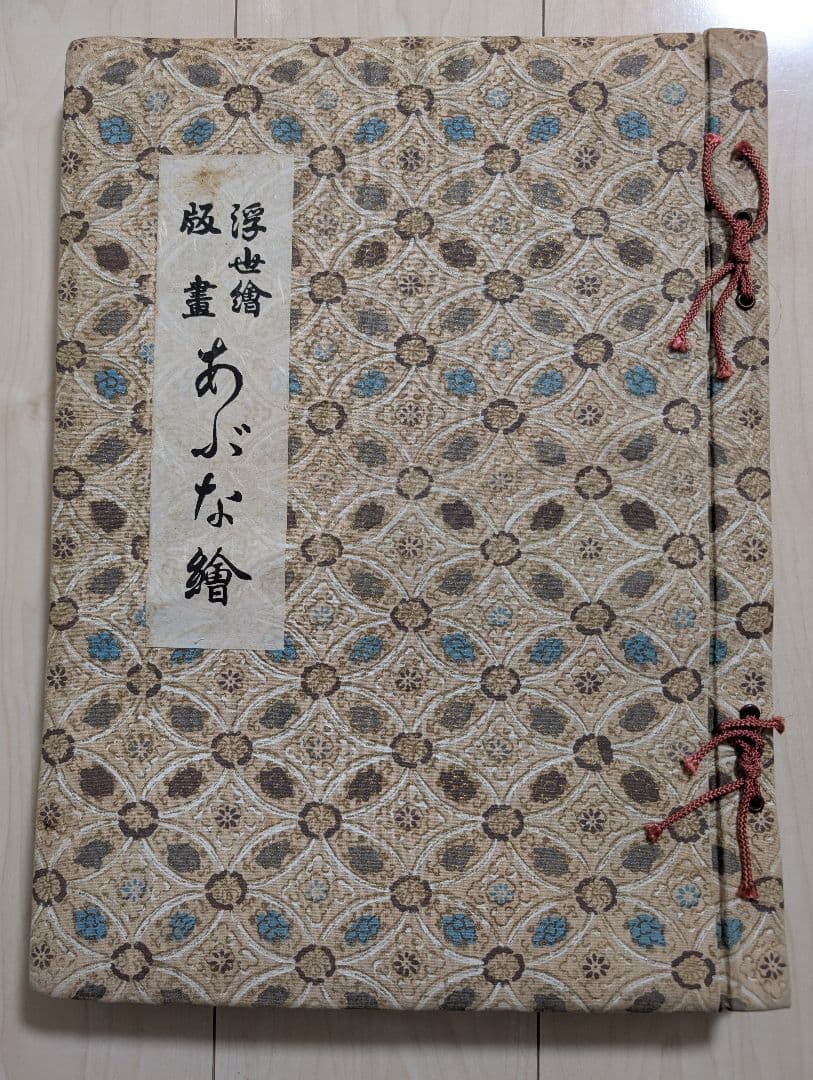 浮世繪
版畫
あぶな繪